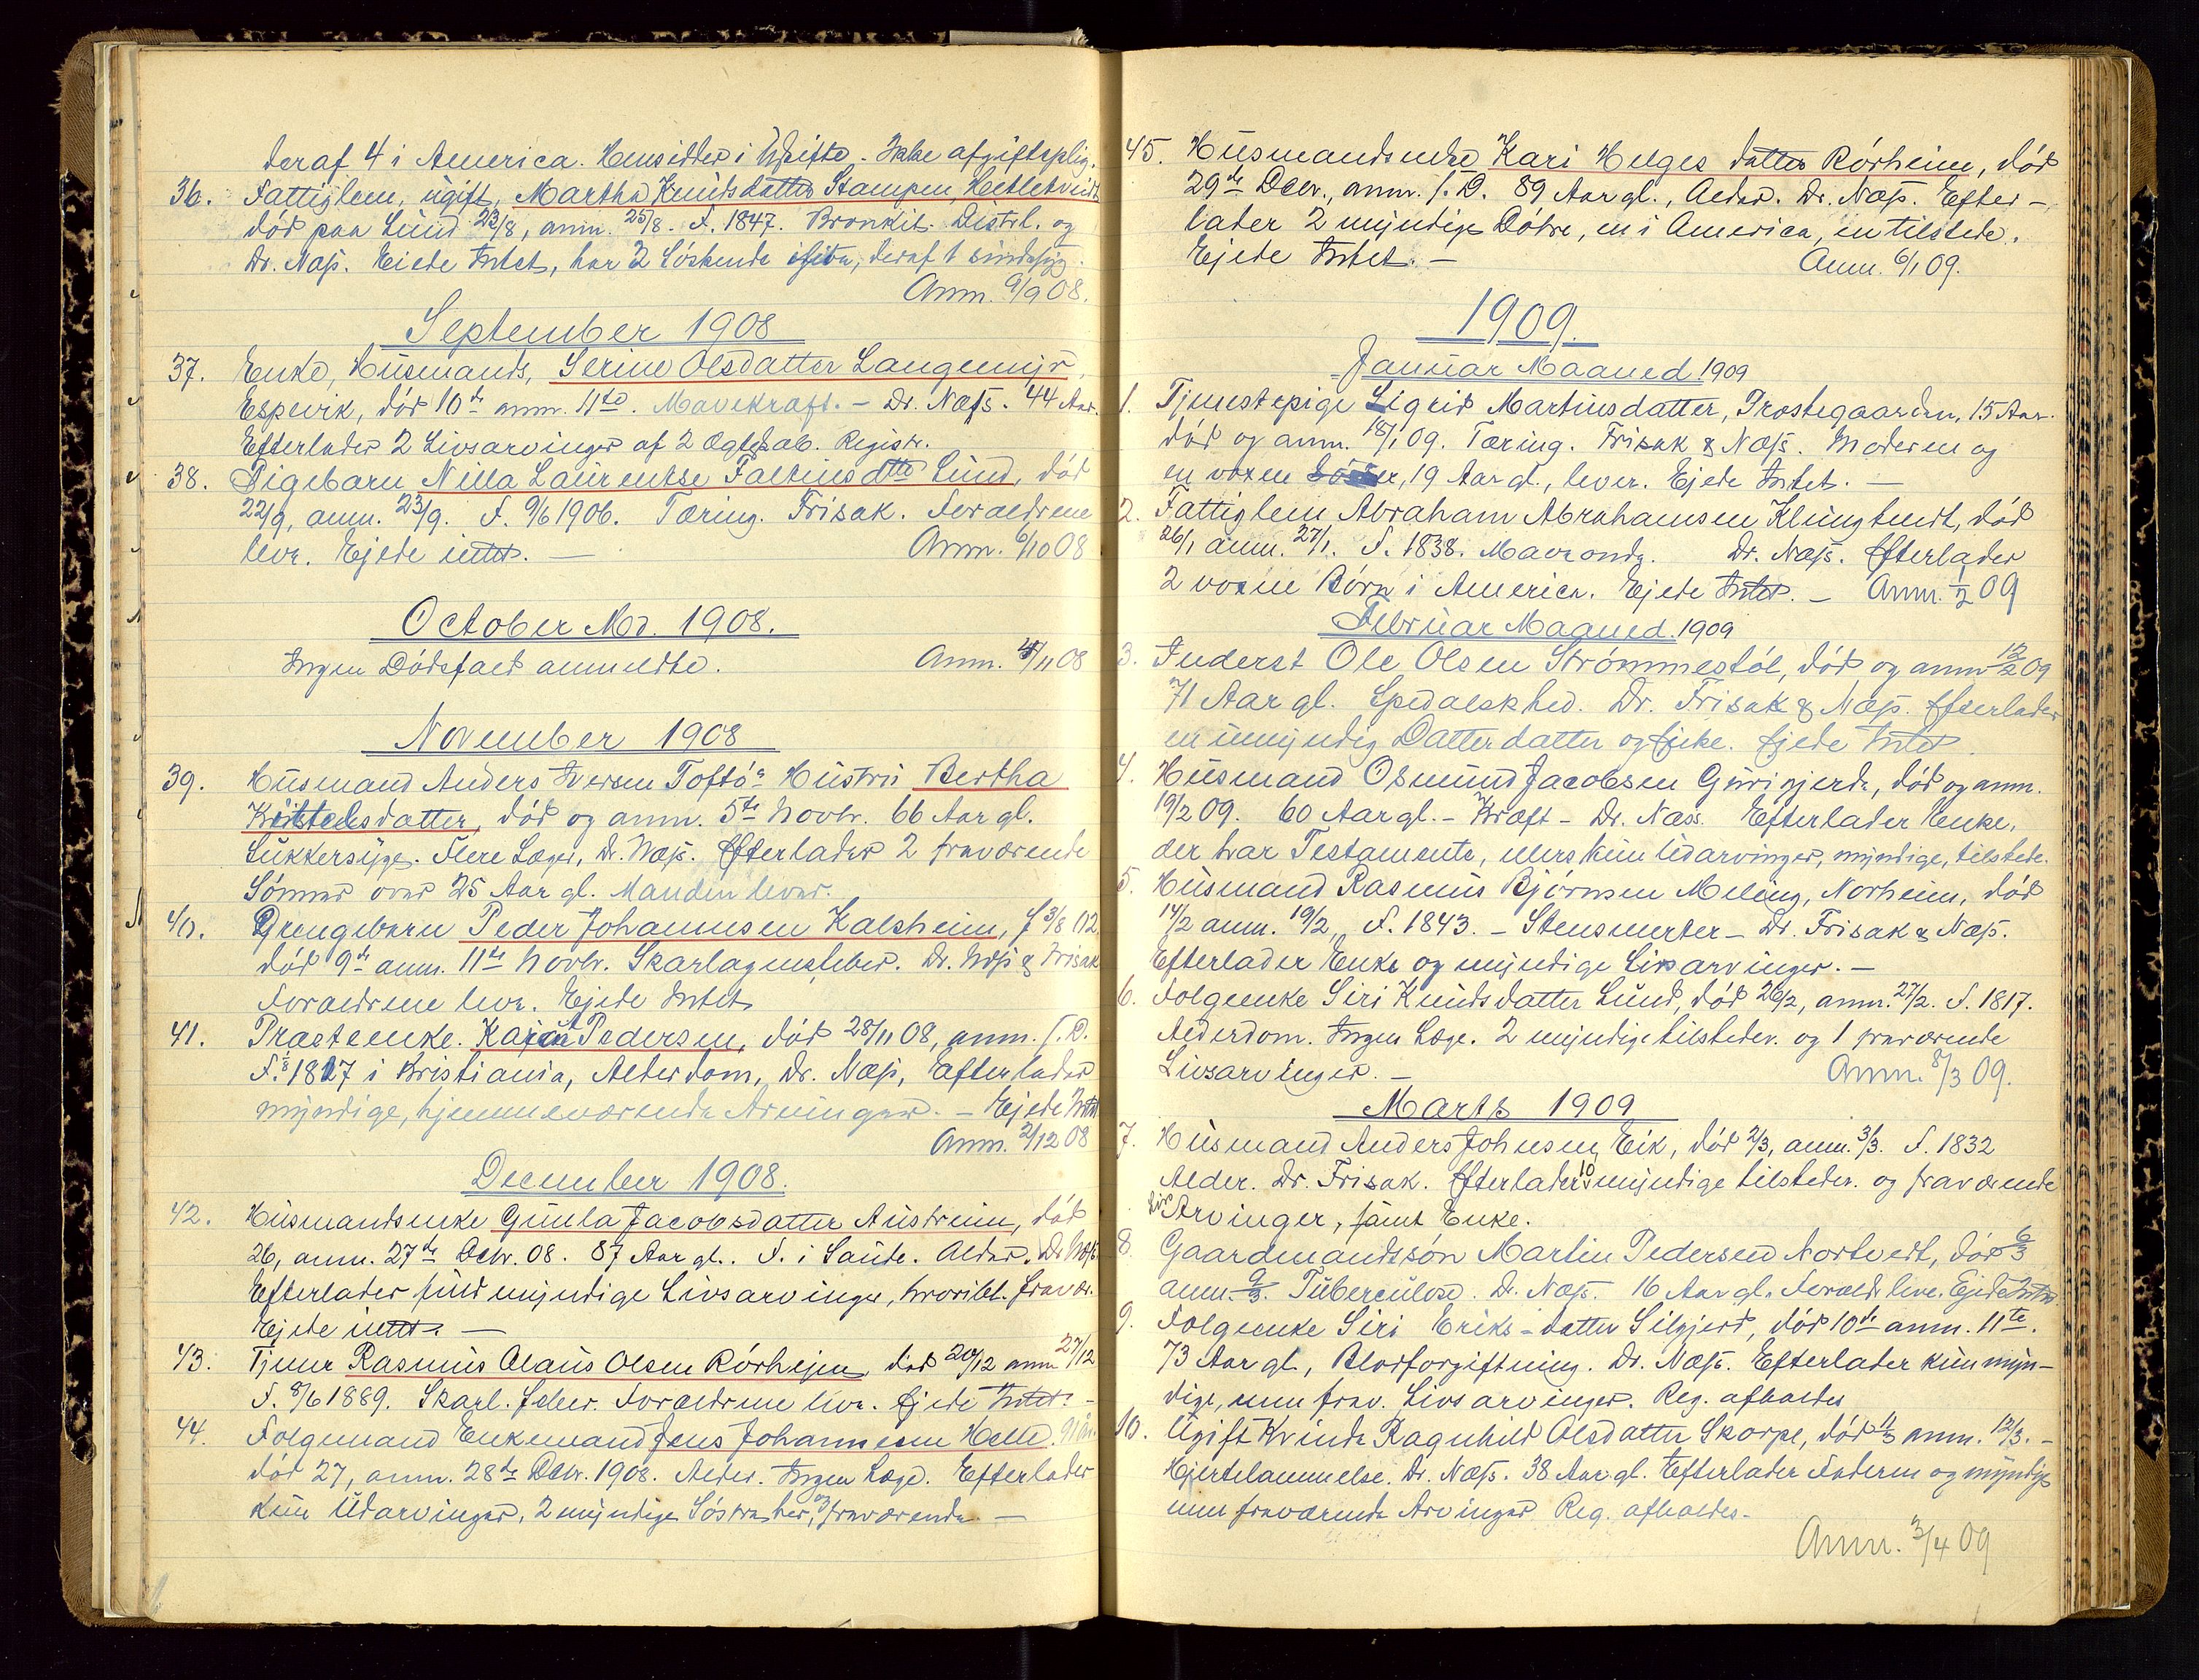 deraf 4 i America. Hensidder i Uskifte. Ikke afgiftsplig.
36. Fattiglem, ugift, Martha Knudsdatter Stampen, Hetletvedt
død paa Lund 23/8, anm. 25/8. F. 1847. Bronkit. Distrl. og
Dr. Næss. Eiede Intet, har 2 Søskende deraf 1 sindssyg.
Anm. 6/9 08.
September 1908
37. Enke, Husmands, Serine Olsdatter Langemyr,
Espevik, død 10de anm. 11te. Mavekræft. – Dr. Næss. 44 Aar.
Efterlader 2 Livsarvinger af 2 Ægteskab. Registr.
38. Pigebarn Nilla Laurentse Faltinsdtter Lund, død
22/9, anm. 23/9. F. 9/6 1906. Tæring. Frisak. Forældrene
leve. Ejede intet. —
Anm. 6/10 08
October Md. 1908.
Ingen Dødsfald anmeldte.
Anm. 4/11 08
November 1908
39. Husmand Anders Iversen Toftø's Hustru Bertha
Kristensdatter, død og anm. 5te Novbr. 66 Aar gl.
Sukkersyge. Flere Læger, Dr. Næss. Efterlader 2 fraværende
Sønner over 25 Aar gl. Manden lever.
40. Drengebarn Peder Johannesen Kalsheim, f 3/8 02,
død 9de anm. 11te Novbr. Skarlagensfeber. Dr. Næss & Frisak
Forældrene leve. Ejede Intet
41. Præsteenke Pedersen, død 28/11 08, anm. s. D.
F. 1817 i Kristiania, Alderdom, Dr. Næss, Efterlader
myndige, hjemmeværende Arvinger. – Ejede Intet
Anm. 2/12 08
December 1908.
42. Husmandsenke Gunla Jacobsdatter Austreim, død
26, anm. 27de Decbr. 08. 87 Aar gl. F. i Saude. Alder. Dr Næss
Efterlader fuldmyndige Livsarvinger, hvoribl. fravær.
Ejede intet. —
43. Tjener Rasmus Olaus Olsen Rørheim, død 20/12 anm 27/12
F. 8/6 1889. Skarl. feber. Forældrene leve. Ejede Intet. –
44. Folgemand Enkemand Jens Johannesen Helle.
død 27, anm. 28de Decbr. 1908. Alder. Ingen Læge. Efterlader
kun Udarvinger, 2 myndige Søstre her, og fraværende. —
45. Husmandsenke Kari Helges datter Rørheim, død
29de Decbr., anm. s. D. 89 Aar gl., Alder. Dr. Næss. Efter-
lader 2 myndige Døtre, en i America, en tilstede.
Ejede Intet. —
Anm. 6/1 09.
1909.
Januar Maaned. 1909
1. Tjenestepige Sigrid Martinsdatter, Præstegaarden, 15 Aar.
død og anm. 18/1 09. Tæring. Frisak & Næss. Moderen og
en voxen , 19 Aar gl., lever. Ejede Intet. —
2. Fattiglem Abraham Abrahamsen Klungtvedt, død
26/1 anm. 27/1. F. 1838. Maveondt. Dr. Næss. Efterlader
2 voxne Børn i America. Ejede Intet. – Anm. 1/2 09
Februar Maaned. 1909
3. Inderst Ole Olsen Strømmestøl, død og anm 12/2 09
71 Aar gl. Spedalskhed. Dr. Frisak & Næss. Efterlader
en umyndig Datterdatter og Enke. Ejede Intet.
4. Husmand Osmund Jacobsen Gurigjerde, død og anm.
19/2 09. 60 Aar gl. – Kræft – Dr. Næss. Efterlader Enke,
der har Testamente, ellers kun Udarvinger, myndige, tilstede.
5. Husmand Rasmus Bjørnsen Meling, Norheim, død
14/2 anm. 19/2, F. 1843. – Stensmerter – Dr. Frisak & Næss.
Efterlader Enke og myndige Livsarvinger. —
6. Folgeenke Siri Knudsdatter Lund, død 26/2, anm. 27/2. F. 1817.
Alderdom. Ingen Læge. 2 myndige tilstedev. og 1 fraværende
Livsarvinger. —
Anm. 8/3 09.
Marts 1909
7. Husmand Anders Johnsen, Eik, død 2/3, anm. 3/3. F. 1832
Alder. Dr. Frisak. Efterlader 10 myndige tilstedev. og fraværende
Livs Arvinger, samt Enke.
8. Gaardmandssøn Martin Pedersen Nortvedt, død 6/3
anm 9/3. Tuberculose. Dr. Næss. 16 Aar gl. Foræld. leve. Ejede Intet
9. Folgeenke Siri Eriks-datter Silgjerd, død 10de anm. 11te.
73 Aar gl., Blodforgiftning. Dr. Næss. Efterlader kun myn-
dige, men frav. Livsarvinger. Reg. afholdes
10. Ugift Kvinde Ragnhild Olsdatter Skorpe, død 11/3 anm. 12/3. –
Hjertelammelse. Dr. Næss. 38 Aar gl. Efterlader Faderen og myndige
men fraværende Arvinger Reg. afholdes.
Anm. 3/4 09